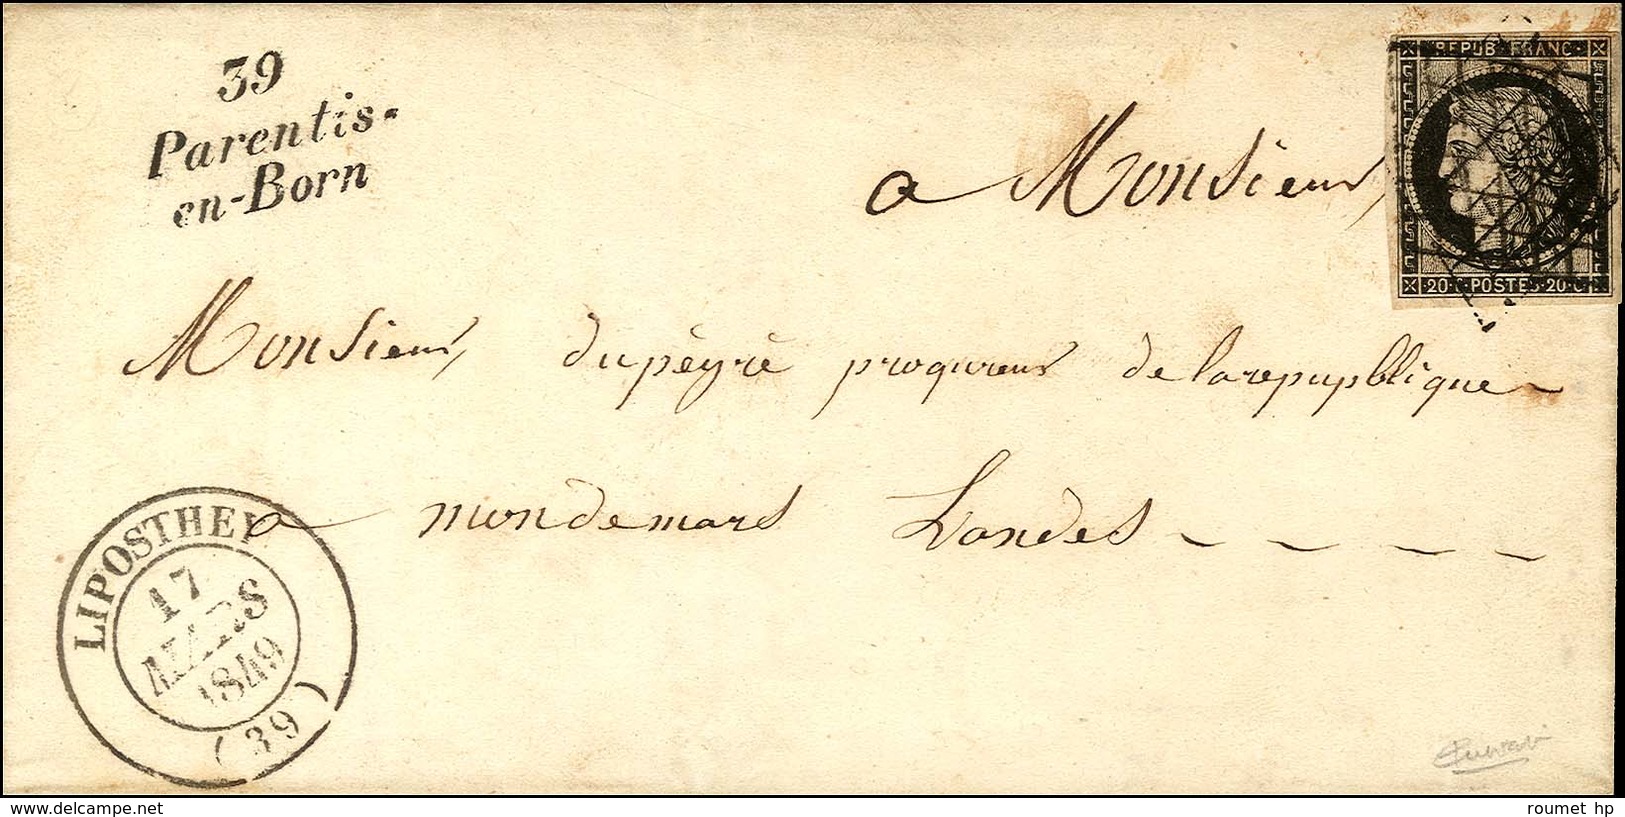 39
Parentis-
en-Born
REPUB FRANC
20 C POSTES 20 C
a Monsieur
Monsieur dupéyré proqureur de la repupblique
a mondemars Landes
LIPOSTHEY
17
MARS
1849
(39)
delcampe.net
roumet hp